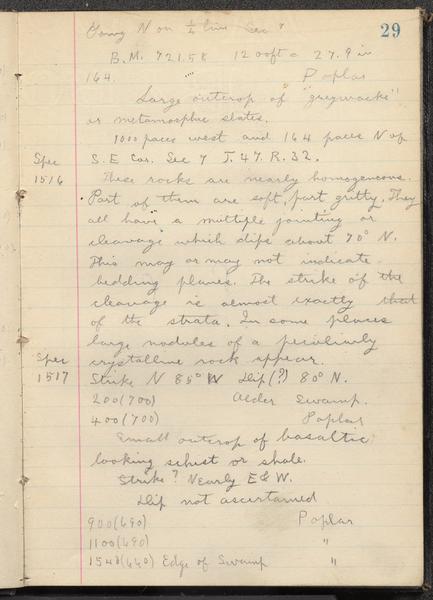 29
Going N on ¼ line Sec 7
B.M. 721.58 1200ft 27.9 in
164. Poplar
Large outcrop of "greywacke"
or metamorphic slates.
1000 paces west and 164 paces N of
S.E Cor. Sec 7 T. 47. R. 32.
Spec
1516
These rocks are nearly homogeneous.
Part of them are soft, part gritty. They
all have a multiple jointing or
cleavage which dips about 70° N.
This may or may not indicate
bedding planes. The strike of the
cleavage is almost exactly that
of the strata. In some places
large nodules of a peculiarly
crystalline rock appear.
Spec
1517
Strike N 85° W Dip(?) 80° N.
200(700) Alder Swamp.
400(700) Poplar
Small outcrop of basaltic
looking schist or shale.
Strike? Nearly E & W.
Dip not ascertained
900(690) Poplar
1100(690) "
1540(640) Edge of Swamp "